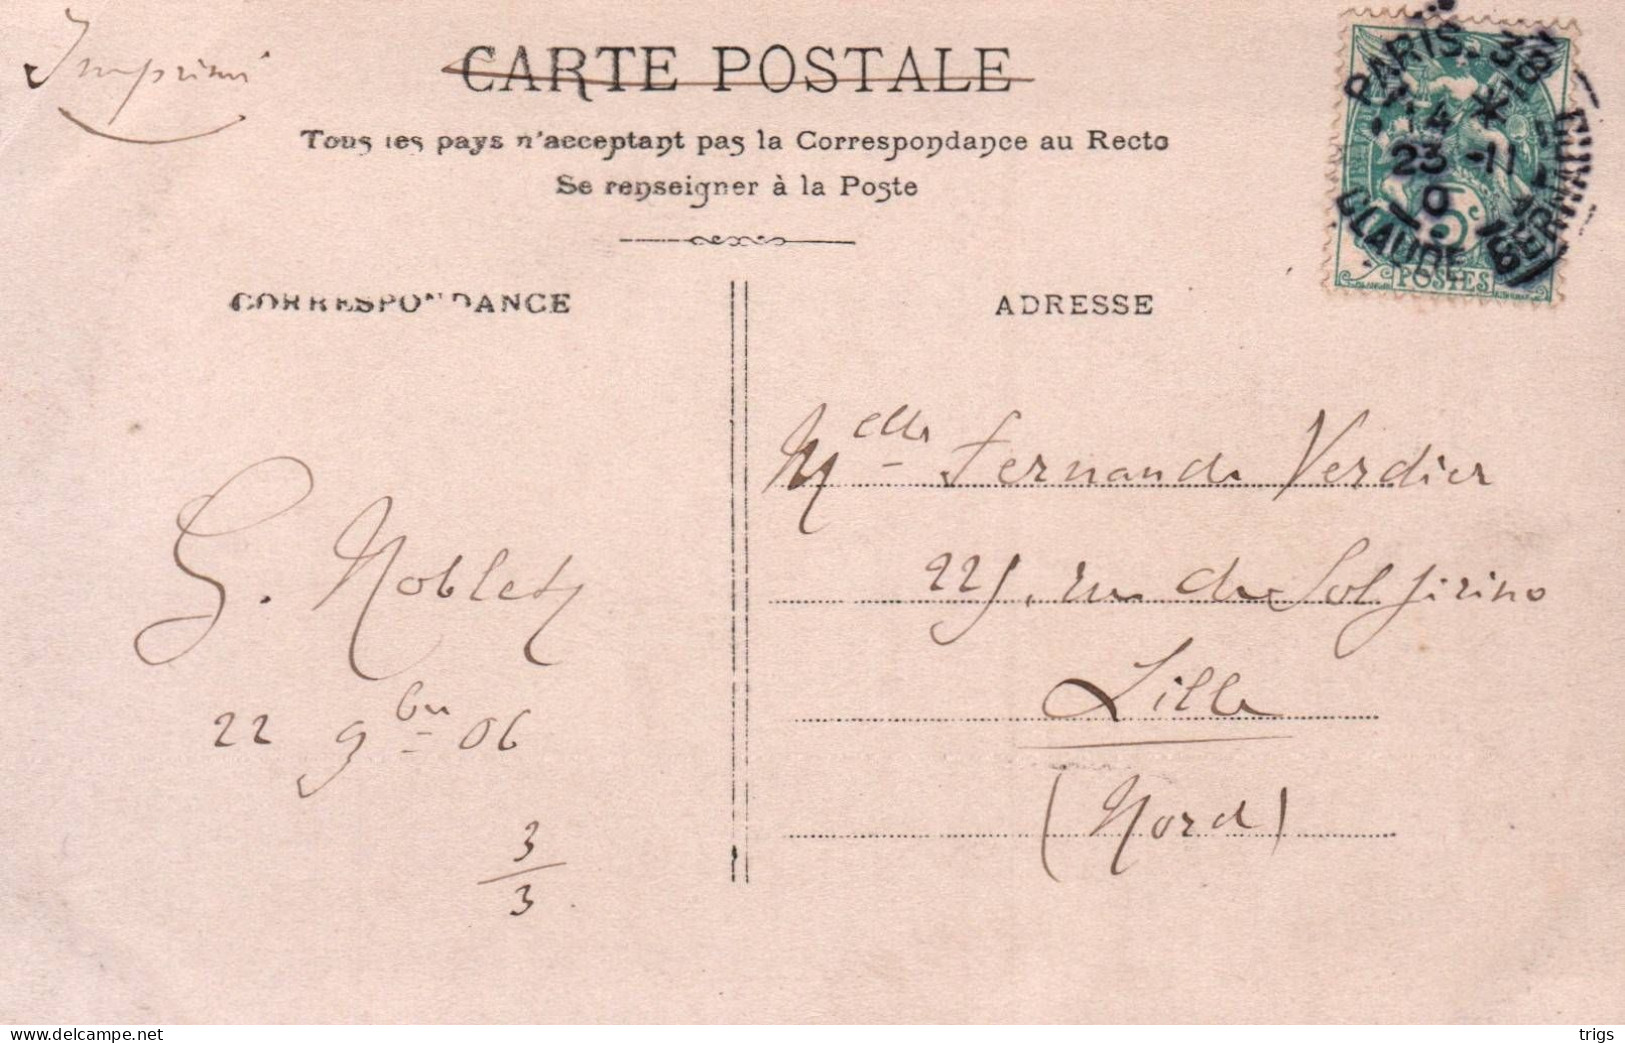 Imprimé
CARTE POSTALE
Tous les pays n'acceptant pas la Correspondance au Recto
Se renseigner à la Poste
PARIS. 38
14 *
23 -11
CLAUDE BERNARD
5c
POSTES
CORRESPONDANCE
ADRESSE
Melle Fernande Verdier
225, rue de Solférino
Lille
(Nord)
G. Noblet
22 9bre 06
3
3
delcampe.net
trigs